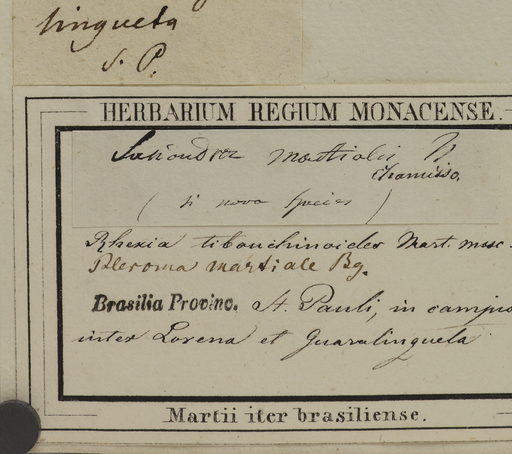 lingueta
S. P.
HERBARIUM REGIUM MONACENSE.
Lasiandra martialis
Chamisso.
( si nova species )
Rhexia tibouchinoides Mart. msc.
Pleroma martiale Bg.
Brasilia Provinc. St. Pauli, in campis
inter Lorena et Guaralingueta
Martii iter brasiliense.